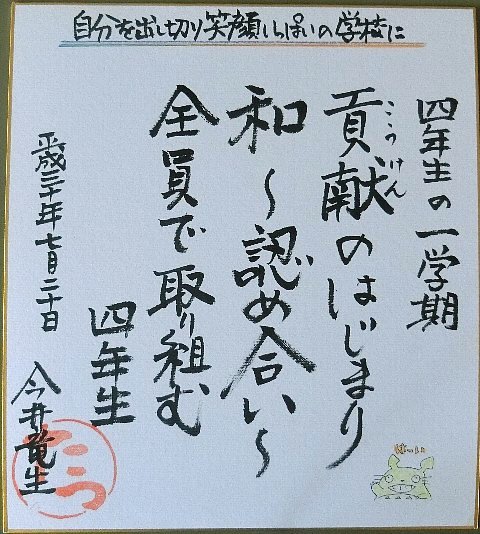 自分を出し切り笑顔いっぱいの学校に
四年生の一学期
貢献のはじまり
こうけん
和～認め合い～
全員で取り組む
四年生
平成三十年七月二十日
今井竜生
たつ
ばーい